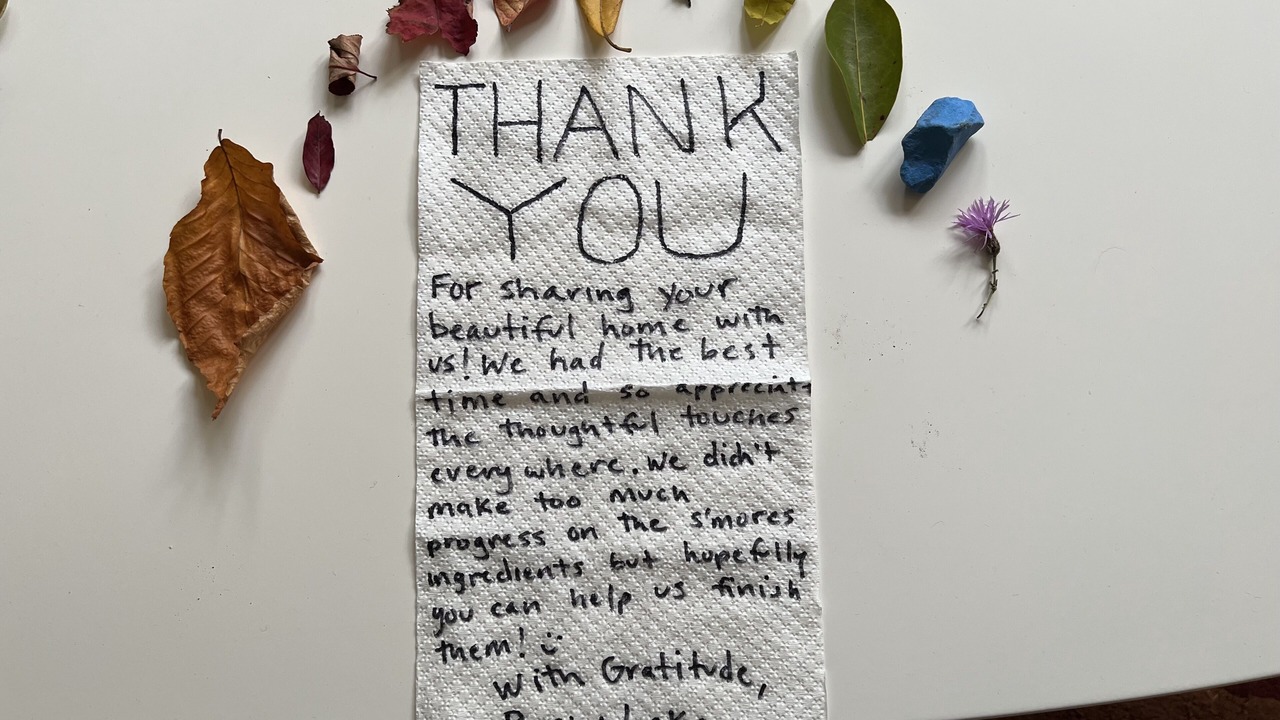 THANK
YOU
For sharing your
beautiful home with
us! We had the best
time and so appreciate
the thoughtful touches
everywhere. We didn't
make too much
progress on the s'mores
ingredients but hopefully
you can help us finish
them! :)
With Gratitude,